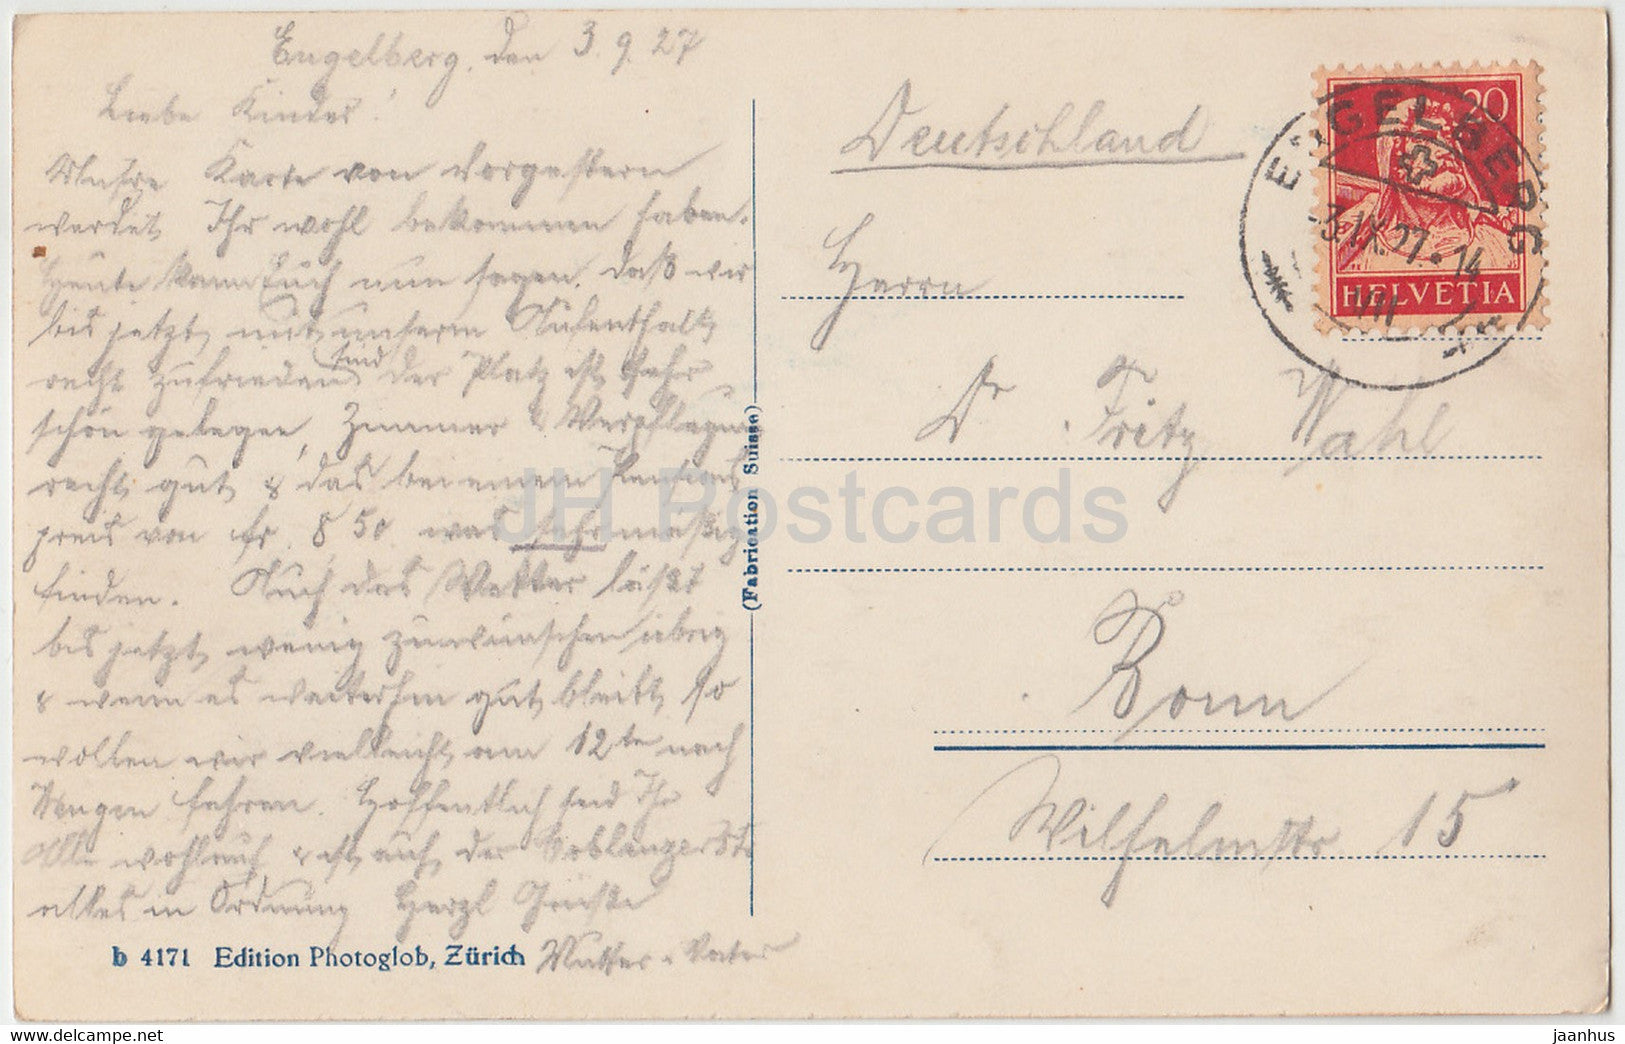 Engelberg, den 3.9.27
Liebe Kinder!
Unsere Karte von vorgestern
werdet Ihr wohl bekommen haben.
Heute kann Euch nun sagen, daß wir
bis jetzt mit unserm Aufenthalt
recht zufrieden sind der Platz ist sehr
schön gelegen, Zimmer & Verpflegung
recht gut & das bei einem Pensions
preis von fr. 8 50 was sehr mäßig
finden. Auch das Wetter läßt
bis jetzt wenig zu wünschen übrig
& wenn es weiterhin gut bleibt so
wollen wir vielleicht am 12te nach
fahren. Hoffentlich seid Ihr
Alle wohlauf & ist auch in der Coblenzerstr
alles in Ordnung Herzl Grüße
Mutter & Vater
b 4171 Edition Photoglob, Zürich
(Fabrication Suisse)
Deutschland
Herrn
Dr Fritz Wahl
Bonn
Wilhelmstr 15
20
HELVETIA
ENGELBERG
-3.IX.27.-14
VIII
JH Postcards
www.delcampe.net
jaanhus